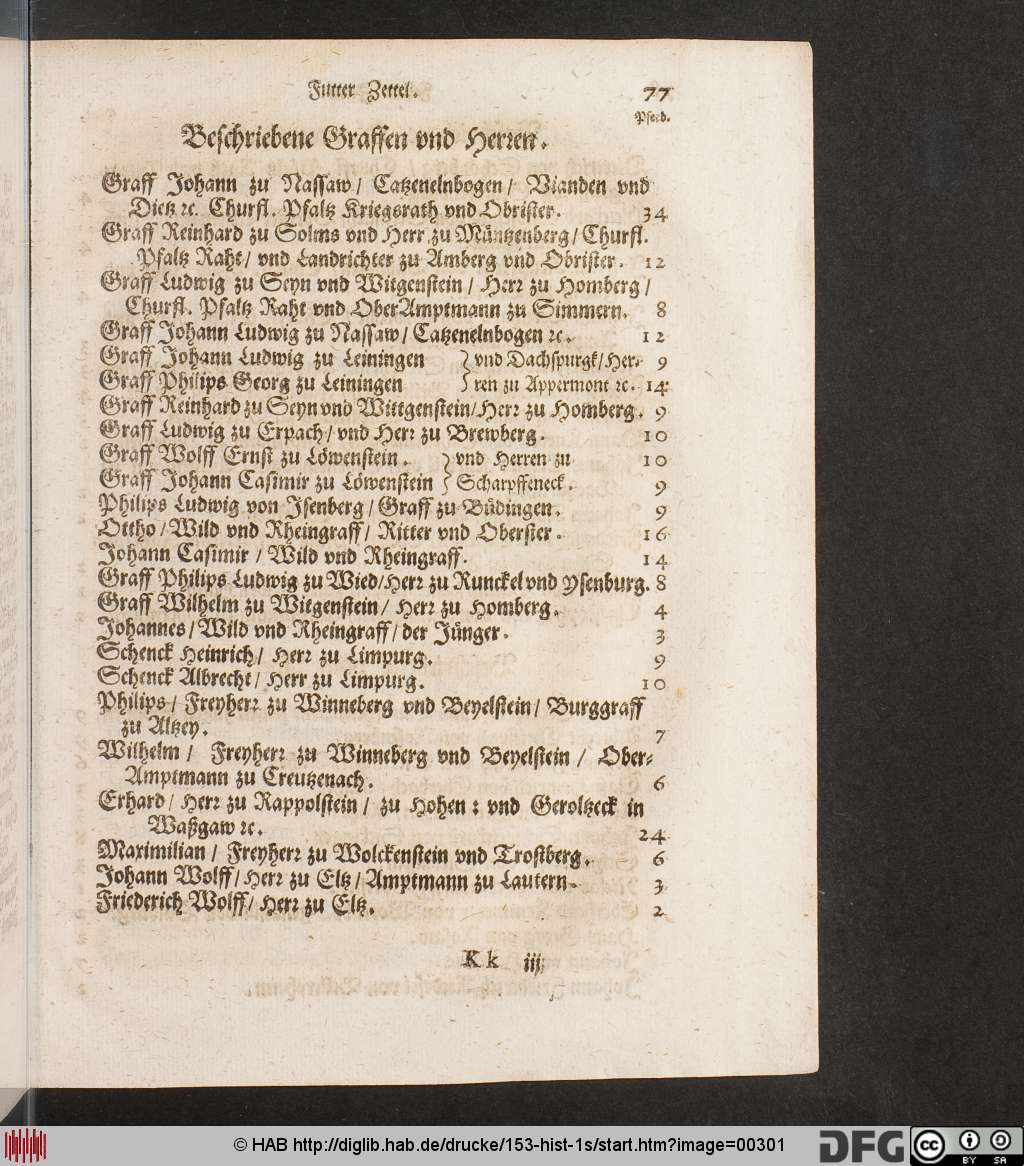 Futter Zettel. 77
Pferd.
Beschriebene Graffen vnd Herren.
Graff Johann zu Nassaw/ Catzenelnbogen/ Vianden vnd
Dietz ꝛc. Churfl. Pfaltz Kriegsrath vnd Obrister. 34
Graff Reinhard zu Solms vnd Herr zu Müntzenberg/ Churfl.
Pfaltz Raht/ vnd Landrichter zu Amberg vnd Obrister. 12
Graff Ludwig zu Seyn vnd Witgenstein/ Herr zu Homberg/
Churfl. Pfaltz Raht vnd OberAmptmann zu Simmern. 8
Graff Johann Ludwig zu Nassaw/ Catzenelnbogen ꝛc. 12
Graff Johann Ludwig zu Leiningen } vnd Dachspurgk/ Her- 9
Graff Philips Georg zu Leiningen } ren zu Appermont ꝛc. 14
Graff Reinhard zu Seyn vnd Wittgenstein/ Herr zu Homberg. 9
Graff Ludwig zu Erpach/ vnd Herr zu Brewberg. 10
Graff Wolff Ernst zu Löwenstein. } vnd Herren zu 10
Graff Johann Casimir zu Löwenstein } Scharpffeneck. 9
Philips Ludwig von Isenberg/ Graff zu Büdingen. 9
Ottho/ Wild vnd Rheingraff/ Ritter vnd Oberster. 16
Johann Casimir/ Wild vnd Rheingraff. 14
Graff Philips Ludwig zu Wied/ Herr zu Runckel vnd Ysenburg. 8
Graff Wilhelm zu Witgenstein/ Herr zu Homberg. 4
Johannes/ Wild vnd Rheingraff/ der Jünger. 3
Schenck Heinrich/ Herr zu Limpurg. 9
Schenck Albrecht/ Herr zu Limpurg. 10
Philips/ Freyherr zu Winneberg vnd Beyelstein/ Burggraff
zu Altzey. 7
Wilhelm/ Freyherr zu Winneberg vnd Beyelstein/ Ober-
Amptmann zu Creutzenach. 6
Erhard/ Herr zu Rappolstein/ zu Hohen: vnd Geroltzeck in
Waßgaw ꝛc. 24
Maximilian/ Freyherr zu Wolckenstein vnd Trostberg. 6
Johann Wolff/ Herr zu Eltz/ Amptmann zu Lautern. 3
Friederich Wolff/ Herr zu Eltz. 2
Kk iij
© HAB http://diglib.hab.de/drucke/153-hist-1s/start.htm?image=00301
DFG
cc BY SA